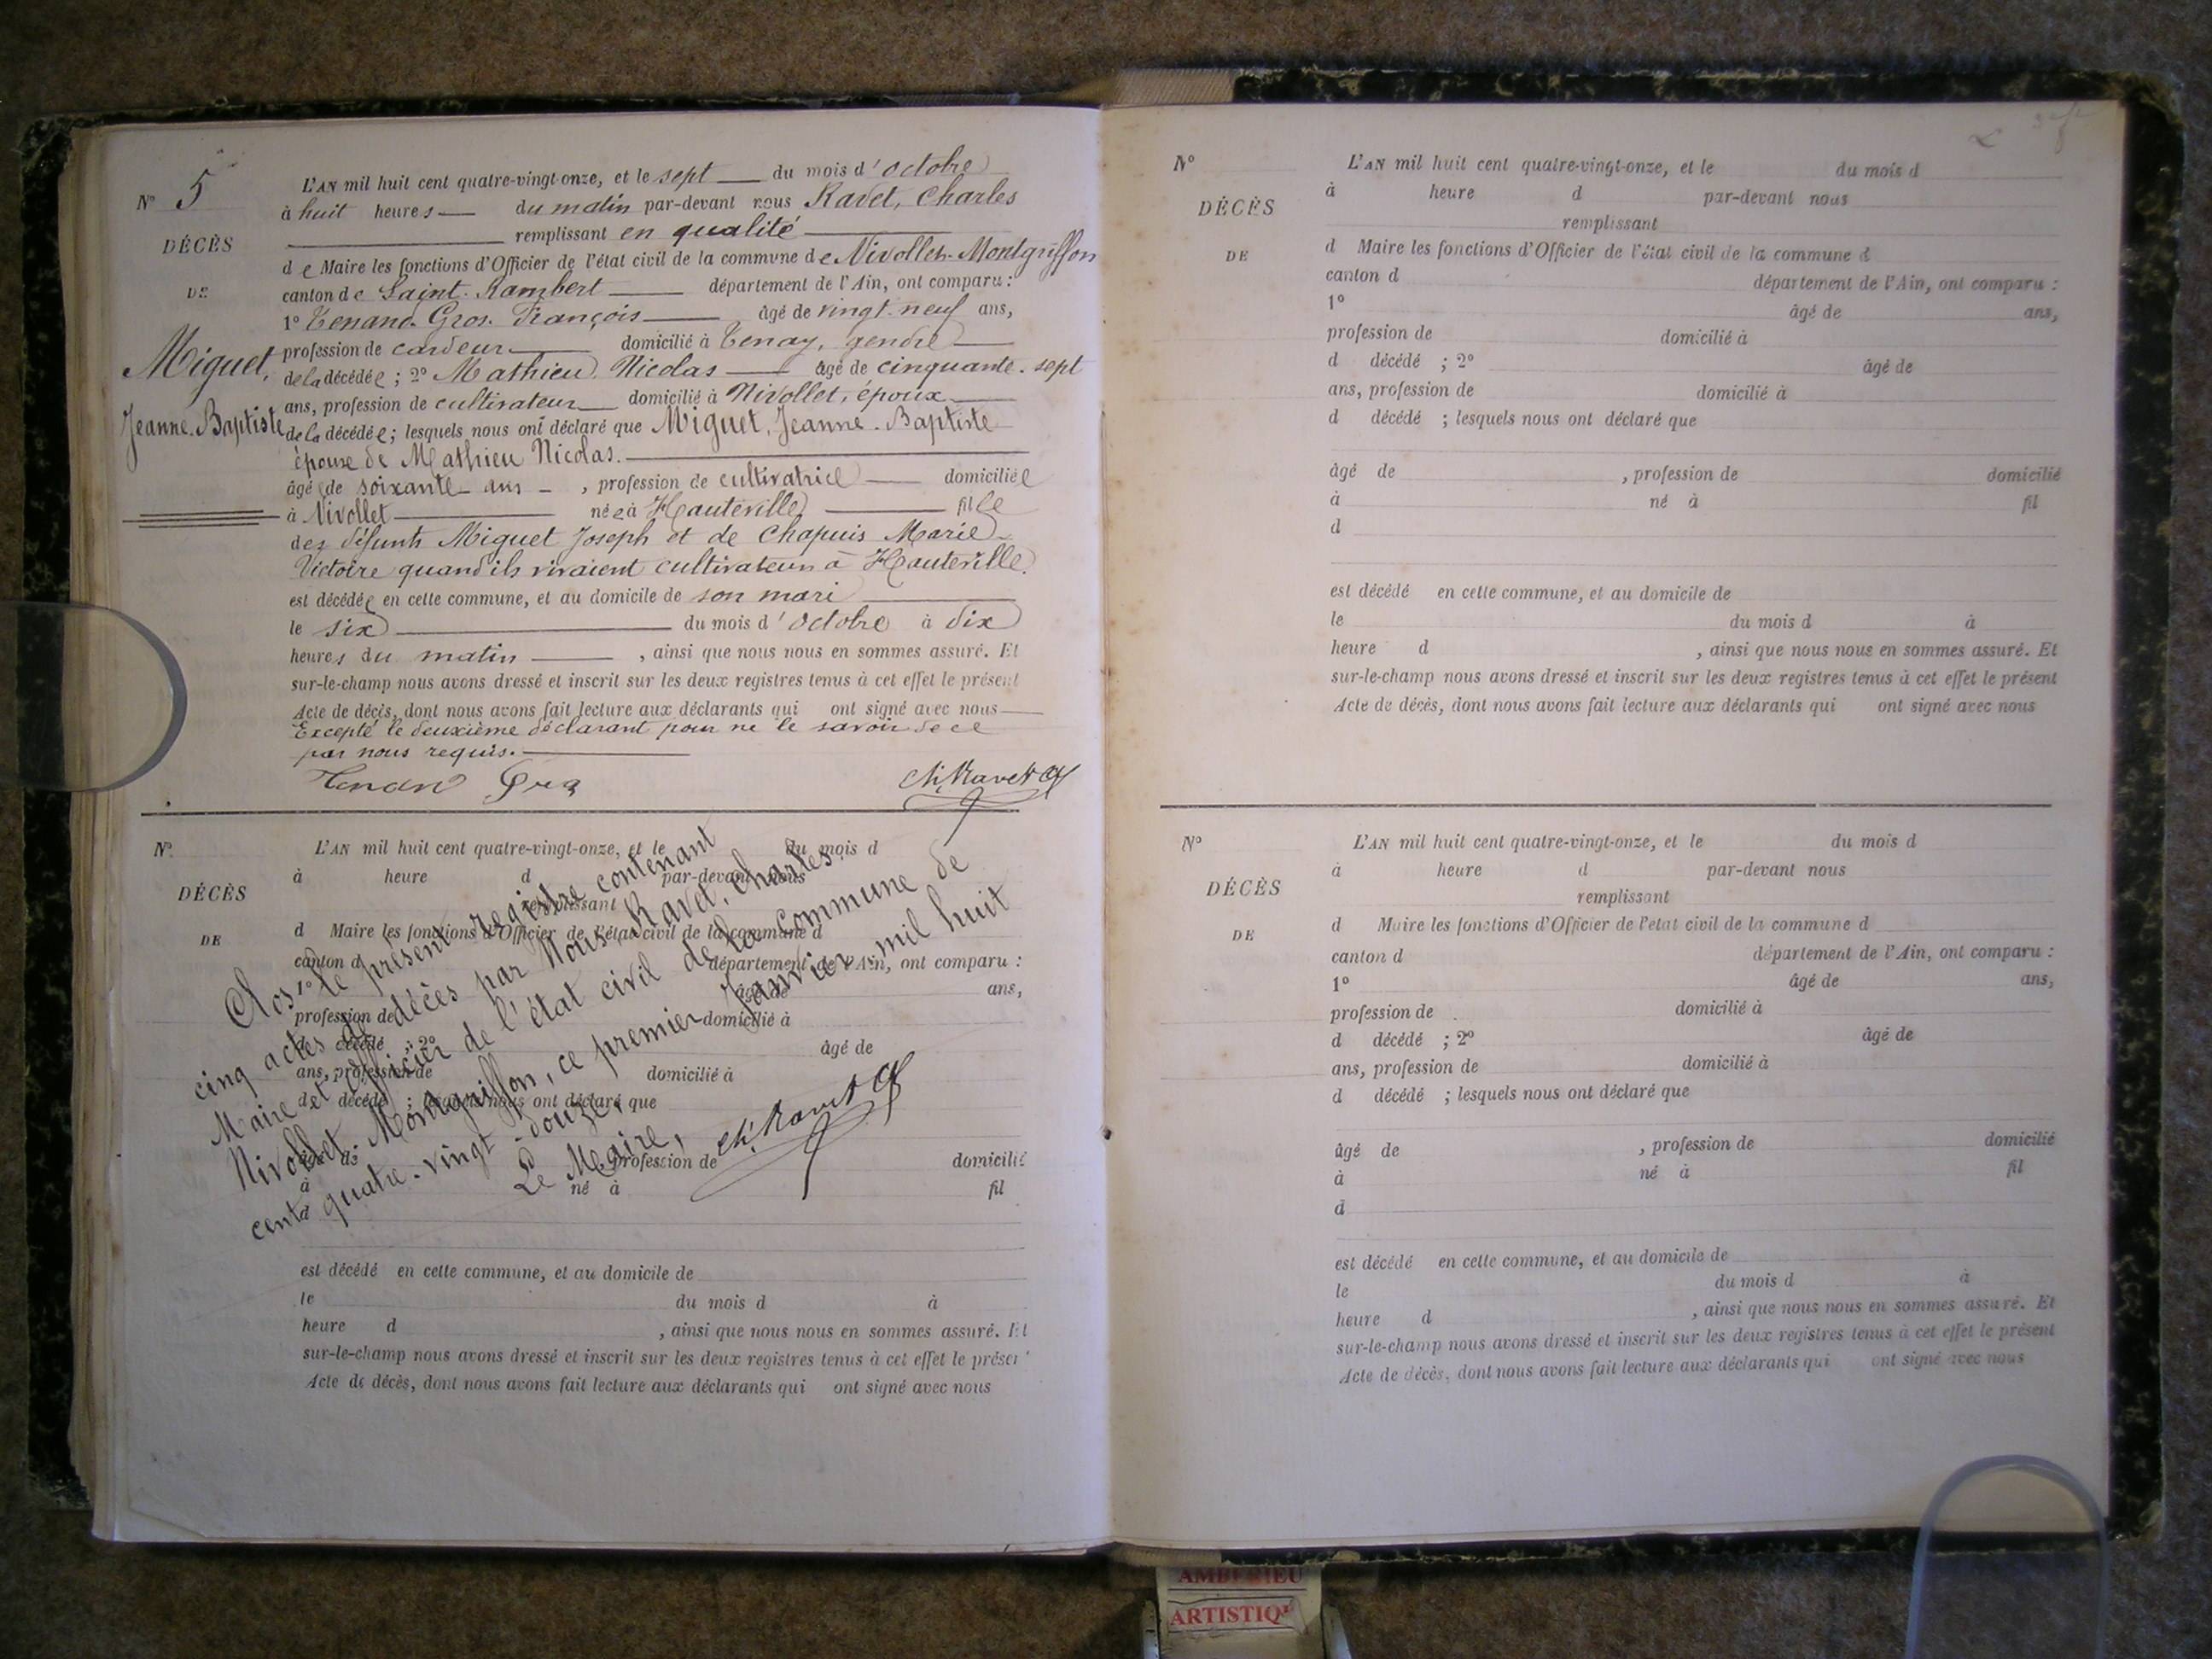 N° 5
DÉCÈS
DE
Miguet,
Jeanne-Baptiste
L'AN mil huit cent quatre-vingt-onze, et le sept du mois d'octobre
à huit heures du matin par-devant nous Ravet, Charles
remplissant en qualité
de Maire les fonctions d'Officier de l'état civil de la commune de Nivollet-Montgriffon
canton de Saint-Rambert département de l'Ain, ont comparu :
1° Tenand-Gros François âgé de vingt-neuf ans,
profession de cardeur domicilié à Tenay, gendre
de la décédée ; 2° Mathieu Nicolas âgé de cinquante-sept
ans, profession de cultivateur domicilié à Nivollet, époux
de la décédée ; lesquels nous ont déclaré que Miguet, Jeanne-Baptiste
épouse de Mathieu Nicolas.
âgé de soixante ans , profession de cultivatrice domiciliée
à Nivollet née à Hauteville fille
des défunts Miguet Joseph et de Chapuis Marie
Victoire quand ils vivaient cultivateurs à Hauteville.
est décédée en cette commune, et au domicile de son mari
le six du mois d'octobre à dix
heures du matin , ainsi que nous nous en sommes assuré. Et
sur-le-champ nous avons dressé et inscrit sur les deux registres tenus à cet effet le présent
Acte de décès, dont nous avons fait lecture aux déclarants qui ont signé avec nous
Excepté le deuxième déclarant pour ne le savoir de ce
par nous requis.
Tenand Gros Ch. Ravet
N°
DÉCÈS
DE
L'AN mil huit cent quatre-vingt-onze, et le du mois d
à heure d par-devant nous
remplissant
d Maire les fonctions d'Officier de l'état civil de la commune d
canton d département de l'Ain, ont comparu :
1° âgé de ans,
profession de domicilié à
d décédé ; 2° âgé de
ans, profession de domicilié à
d décédé ; lesquels nous ont déclaré que
âgé de , profession de domicilié
à né à fil
d
est décédé en cette commune, et au domicile de
le du mois d à
heure d , ainsi que nous nous en sommes assuré. Et
sur-le-champ nous avons dressé et inscrit sur les deux registres tenus à cet effet le présent
Acte de décès, dont nous avons fait lecture aux déclarants qui ont signé avec nous
Clos le présent registre contenant
cinq actes de décès par Nous, Ravet, Charles
Maire et officier de l'état civil de la commune de
Nivollet-Montgriffon, ce premier Janvier mil huit
cent quatre-vingt-douze.
Le Maire,
Ch. Ravet
N°
DÉCÈS
DE
L'AN mil huit cent quatre-vingt-onze, et le du mois d
à heure d par-devant nous
remplissant
d Maire les fonctions d'Officier de l'état civil de la commune d
canton d département de l'Ain, ont comparu :
1° âgé de ans,
profession de domicilié à
d décédé ; 2° âgé de
ans, profession de domicilié à
d décédé ; lesquels nous ont déclaré que
âgé de , profession de domicilié
à né à fil
d
est décédé en cette commune, et au domicile de
le du mois d à
heure d , ainsi que nous nous en sommes assuré. Et
sur-le-champ nous avons dressé et inscrit sur les deux registres tenus à cet effet le présent
Acte de décès, dont nous avons fait lecture aux déclarants qui ont signé avec nous
N°
DÉCÈS
DE
L'AN mil huit cent quatre-vingt-onze, et le du mois d
à heure d par-devant nous
remplissant
d Maire les fonctions d'Officier de l'etat civil de la commune d
canton d département de l'Ain, ont comparu :
1° âgé de ans,
profession de domicilié à
d décédé ; 2° âgé de
ans, profession de domicilié à
d décédé ; lesquels nous ont déclaré que
âgé de , profession de domicilié
à né à fil
d
est décédé en cette commune, et au domicile de
le du mois d à
heure d , ainsi que nous nous en sommes assuré. Et
sur-le-champ nous avons dressé et inscrit sur les deux registres tenus à cet effet le présent
Acte de décès, dont nous avons fait lecture aux déclarants qui ont signé avec nous
AMBERIEU
ARTISTIQ